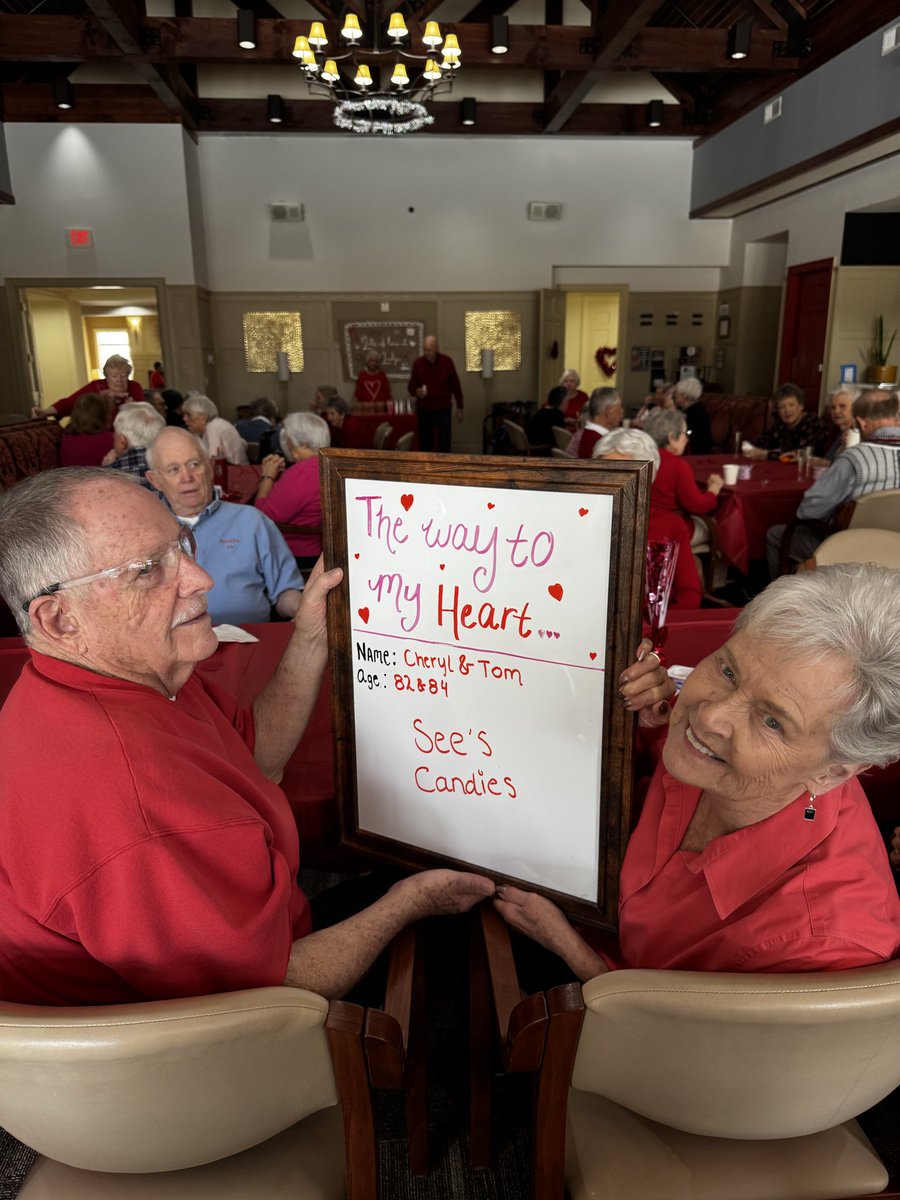 The way to
my Heart...
Name: Cheryl & Tom
Age: 82 & 84
See's
Candies
EXIT